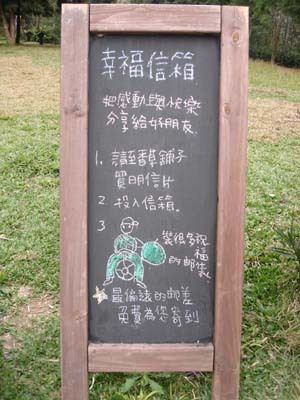 幸福信箱
把感動與快樂
分享給好朋友
1. 請至香草鋪子
買明信片
2. 投入信箱。
3
裝很多祝福
的郵袋
最偏遠的郵差
免費為您寄到